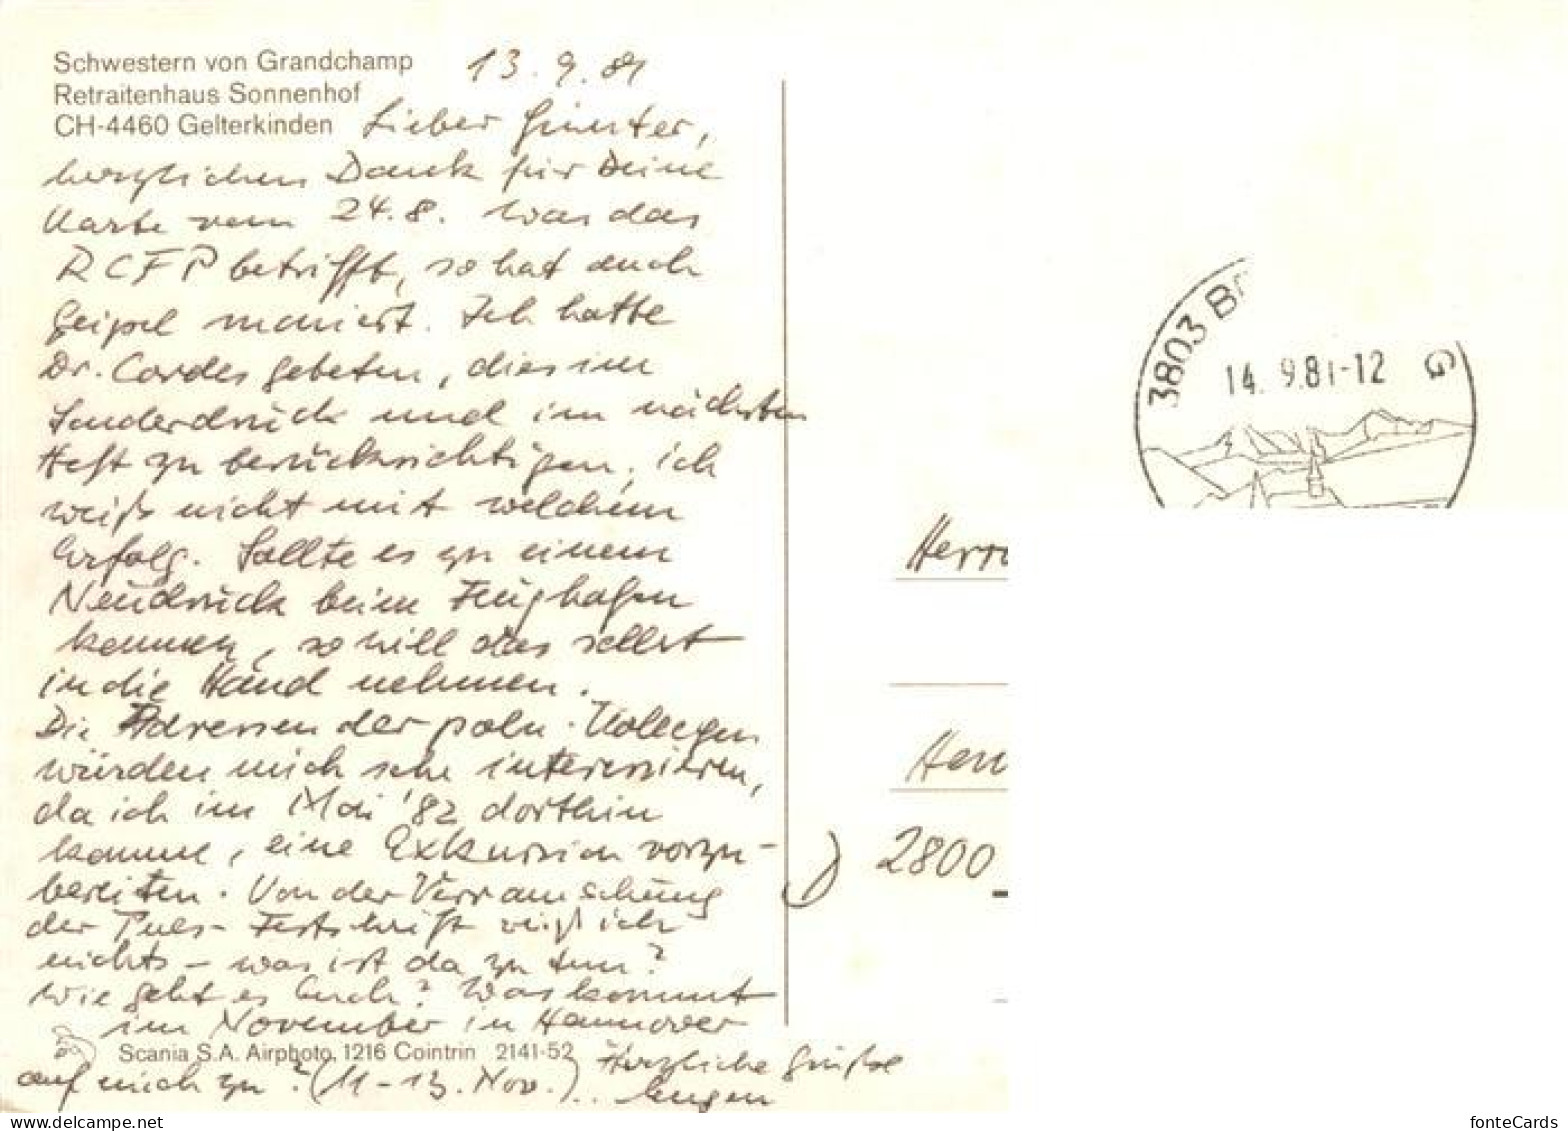 Schwestern von Grandchamp
Retraitenhaus Sonnenhof
CH-4460 Gelterkinden
13.9.81
Lieber Günter,
herzlichen Dank für Deine
Karte vom 24.8. Was das
RCFP betrifft, so hat auch
Geipel moniert. Ich hatte
Dr. Cordes gebeten, dies im
Sonderdruck und im nächsten
Heft zu berücksichtigen, ich
weiß nicht mit welchem
Erfolg. Sollte es zu einem
Neudruck beim Flughafen
kommen, so will das selbst
in die Hand nehmen.
Die Adressen der poln. Kollegen
würden mich sehr interessieren,
da ich im Mai '82 dorthin
komme, eine Exkursion vorzu-
bereiten. Von der
der Festschrift weiß ich
nichts – was ist da zu tun?
Wie geht es Euch? Was kommt
im November in Hannover
auf mich zu? (11-13. Nov.)
Herzliche Grüße
Eugen
Scania S.A. Airphoto, 1216 Cointrin 2141-52
3803 B
G
14. 9.81-12
Herrn
2800
fonteCards